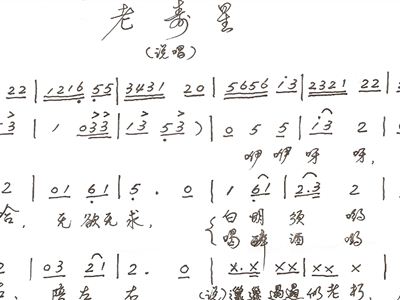 老寿星
(说唱)
22 | 1216 55 | 3431 20 | 5656 i3 | 2321 22 |
3 | 1 033 | 13 53 ) | 0 5 5 | i3 2 |
咿 咿 呀 呀,
2 | 01 61 | 5. 0 | 1 61 | 2.3 2 |
合, 无欲无求, 白明须 哟
喝醉酒 哟
2 | 03 21 | 2. 0 | x.x xx | xx x |
陪左右 (说) 邋邋遢遢 老